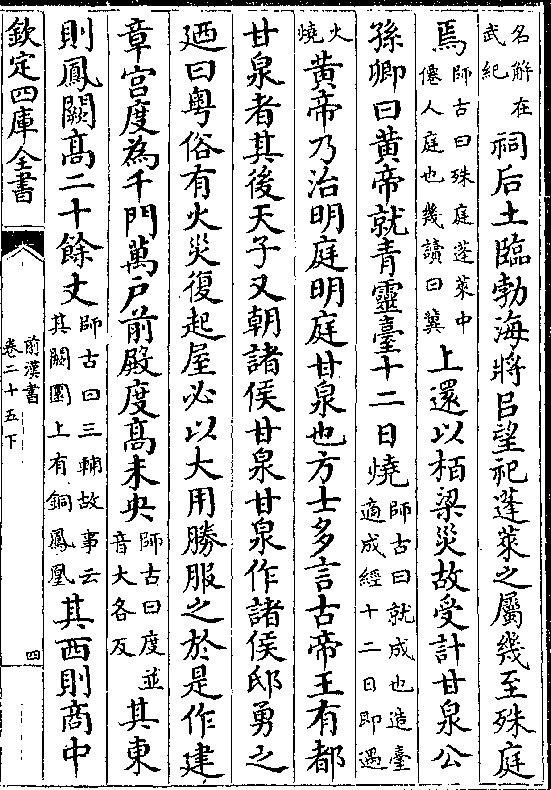 名解在武紀祠后土臨勃海將㠯望祀蓬萊之屬幾至殊庭
焉師古曰殊庭蓬萊中僊人庭也幾讀曰冀上還以栢梁災故受計甘泉公
孫卿曰黄帝就青靈臺十二日燒師古曰就成也造臺適成經十二日即遇火燒
黄帝乃治明庭明庭甘泉也方士多言古帝王有都
甘泉者其後天子又朝諸侯甘泉甘泉作諸侯邸勇之
廼曰粤俗有火災復起屋必以大用勝服之於是作建
章宫度為千門萬戸前殿度髙未央師古曰度並音大各反其東
則鳳闕髙二十餘丈師古曰三輔故事云其闕圜上有銅鳳凰其西則商中
欽定四庫全書
前漢書
卷二十五下
四